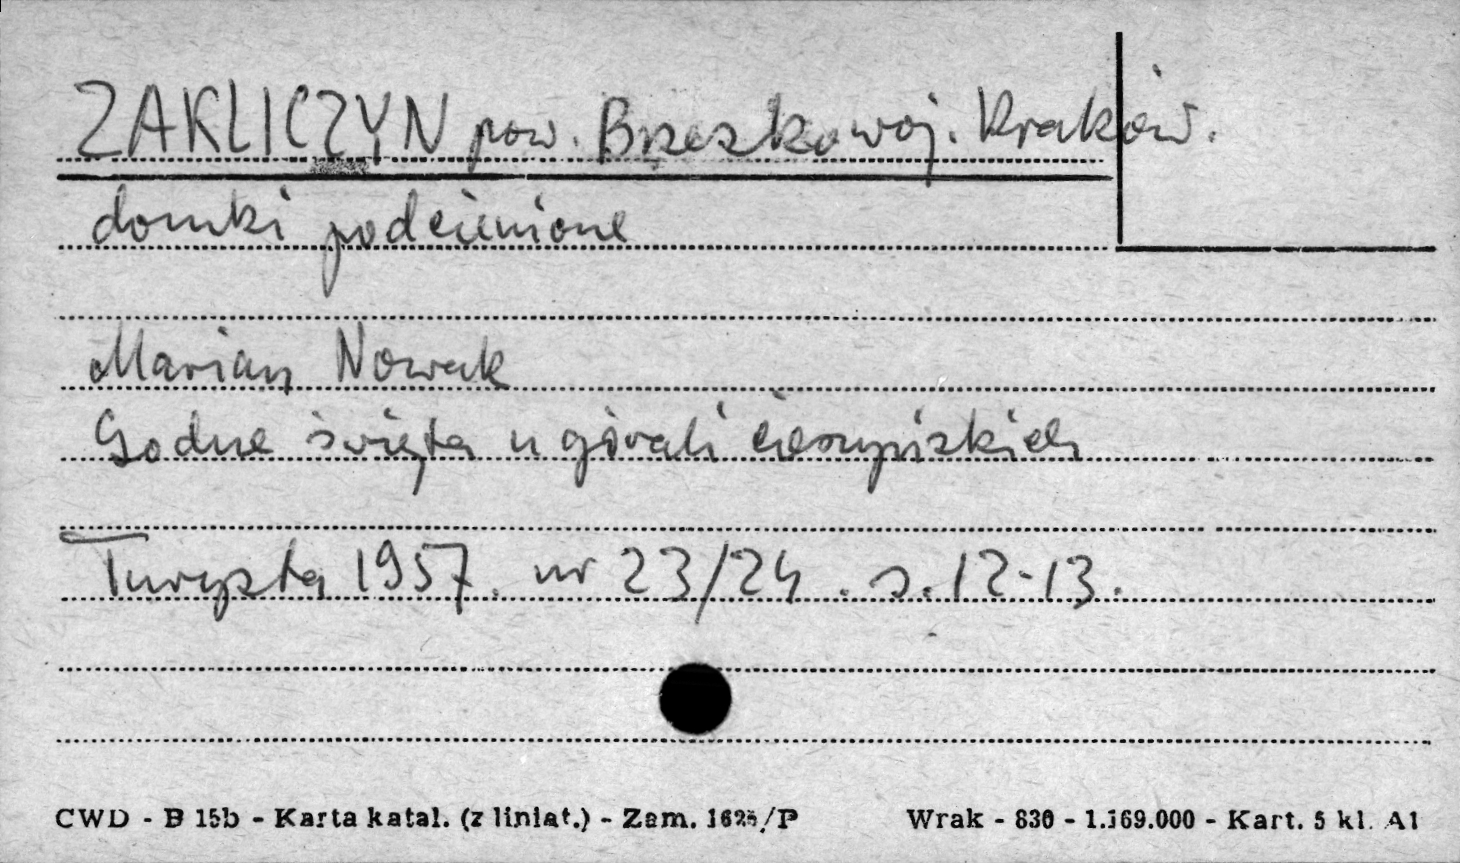 ZAKLICZYN pow. Brzesko woj. Kraków.
domki podcieniowe
Marian Nowak
Godne święta u górali cieszyńskich
Turysta 1957. nr 23/24. s. 12-13.
CWD - B 15b - Karta katal. (z liniat.) - Zam. 1625/P Wrak - 830 - 1.169.000 - Kart. 5 kl. A1